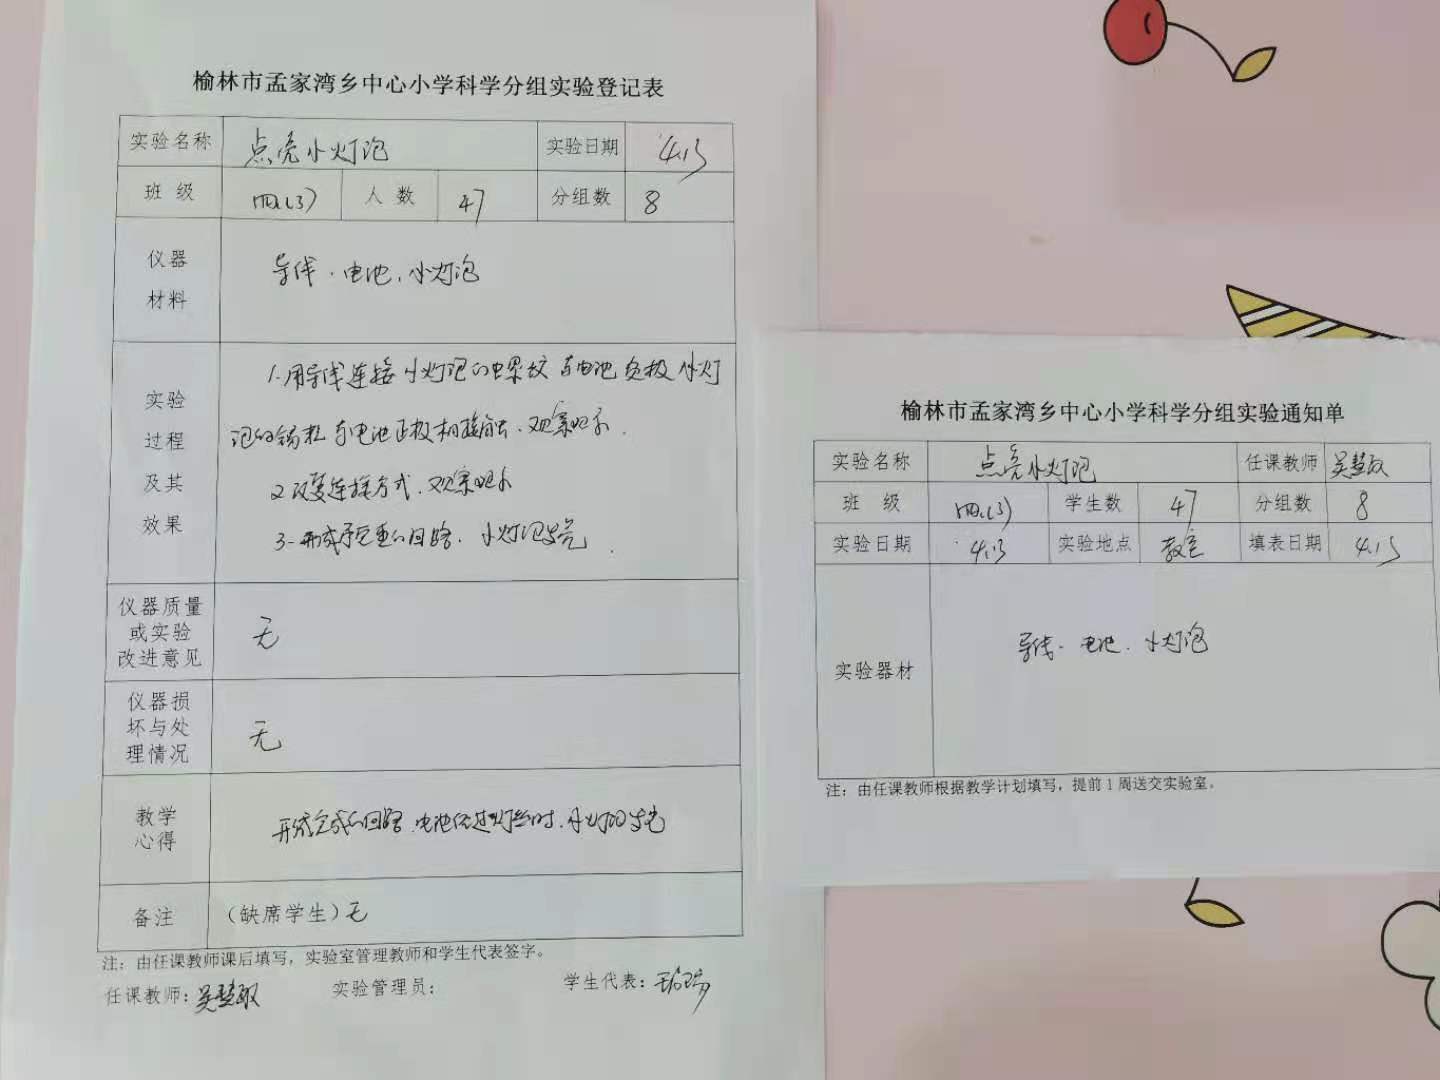 榆林市孟家湾乡中心小学科学分组实验登记表
实验名称 点亮小灯泡 实验日期 4.13
班 级 四.(3) 人 数 47 分组数 8
仪器
材料
导线、电池、小灯泡
实验
过程
及其
效果
1.用导线连接小灯泡的螺纹与电池负极 小灯
泡的锡粒与电池正极相接触、观察现象.
2.改变连接方式、观察现象
3.形成完整的回路、小灯泡发亮.
仪器质量
或实验
改进意见
无
仪器损
坏与处
理情况
无
教学
心得
形成完整的回路、电池 时、小灯泡发光
备注 (缺席学生)无
注：由任课教师课后填写，实验室管理教师和学生代表签字。
任课教师：吴慧敏 实验管理员： 学生代表：
榆林市孟家湾乡中心小学科学分组实验通知单
实验名称 点亮小灯泡 任课教师 吴慧敏
班 级 四.(3) 学生数 47 分组数 8
实验日期 4.13 实验地点 教室 填表日期 4.13
实验器材 导线、电池、小灯泡
注：由任课教师根据教学计划填写，提前1周送交实验室。